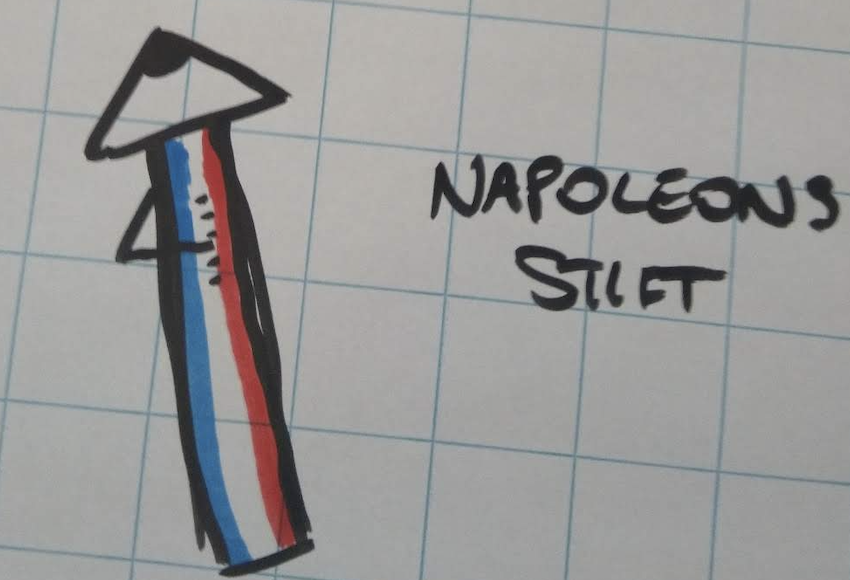 NAPOLEONS
STIFT